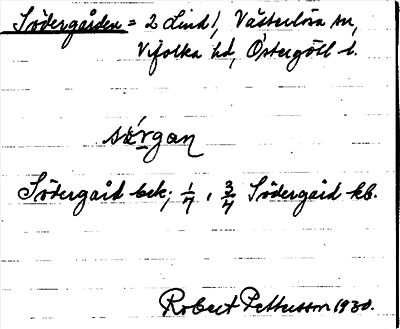 Södergården = 2 Lind!, Västerlösa sn,
Vifolka hd, Östergötl l.
sörgan
Södergård bek; 1/4, 3/4 Södergård kb.
Robert Pettersson 1930.